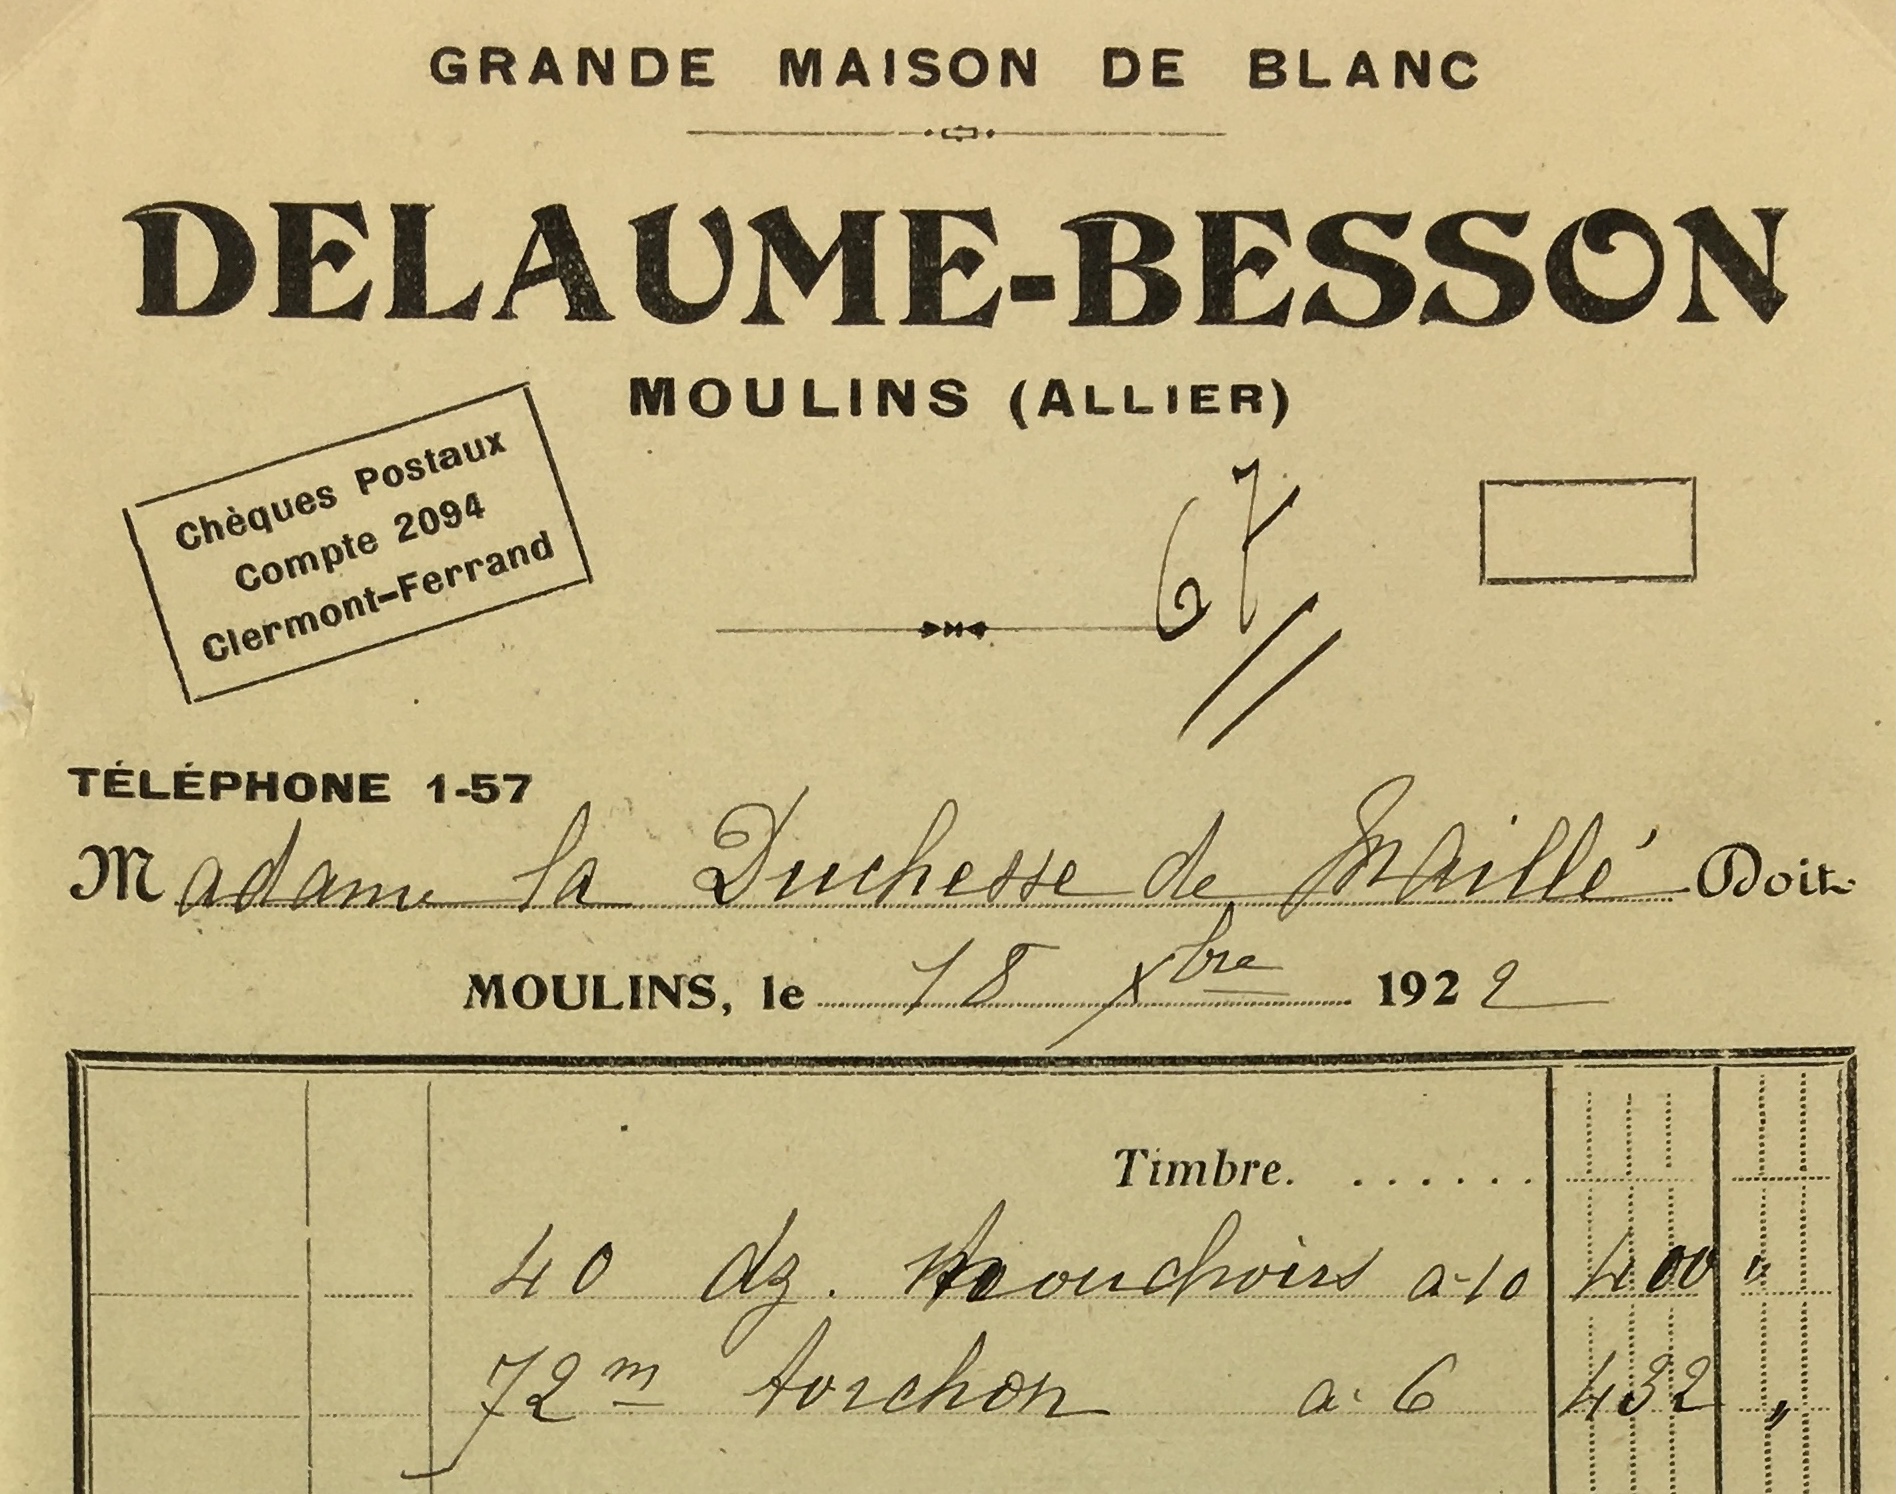 GRANDE MAISON DE BLANC
DELAUME-BESSON
MOULINS (ALLIER)
Chèques Postaux
Compte 2094
Clermont-Ferrand
67
TÉLÉPHONE 1-57
Madame la Duchesse de Maillé Doit
MOULINS, le 18 Xbre 1922
Timbre. . . . . . .
40 dz. Mouchoirs a 10 400 "
72 m torchon a 6 432 "